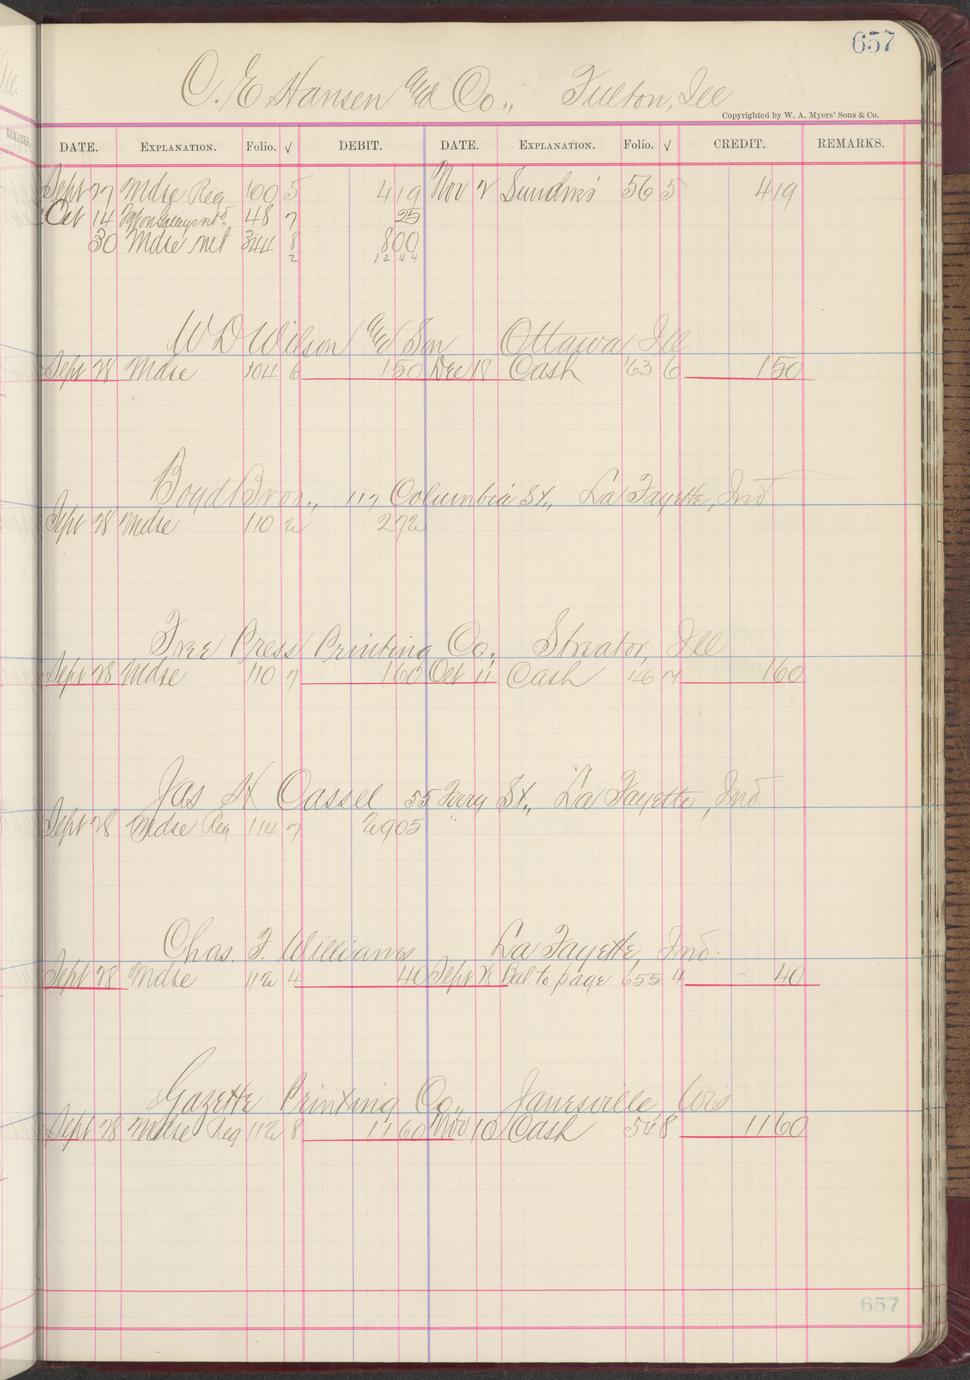 657
O. E. Hansen and Co., Fulton, Ill
Copyrighted by W. A. Myers' Sons & Co.
DATE. EXPLANATION. Folio. √ DEBIT. DATE. EXPLANATION. Folio. √ CREDIT. REMARKS.
Sept 27 Mdse Reg 100 5 419 Nov 2 Sundries 56 5 419
Oct 14 48 7 25
30 Mdse net 344 8 800
2 1244
W D Wilson and Son Ottawa Ill
Sept 28 Mdse 104 6 150 Dec 18 Cash 63 6 150
Boyd Bros., 117 Columbia St., La Fayette, Ind
Sept 28 Mdse 110 2 272
Free Press Printing Co., Streator, Ill
Sept 28 Mdse 110 7 160 Oct 11 Cash 46 7 160
Jas H Cassel 55 Ferry St., La Fayette, Ind
Sept 28 Mdse Reg 114 7 2905
Chas. F. Williams La Fayette, Ind.
Sept 28 Mdse 112 4 40 Sept 28 Bal to page 655 4 40
Gazette Printing Co., Janesville Wis
Sept 28 Mdse Reg 112 8 1160 Nov 10 Cash 54 8 1160
657